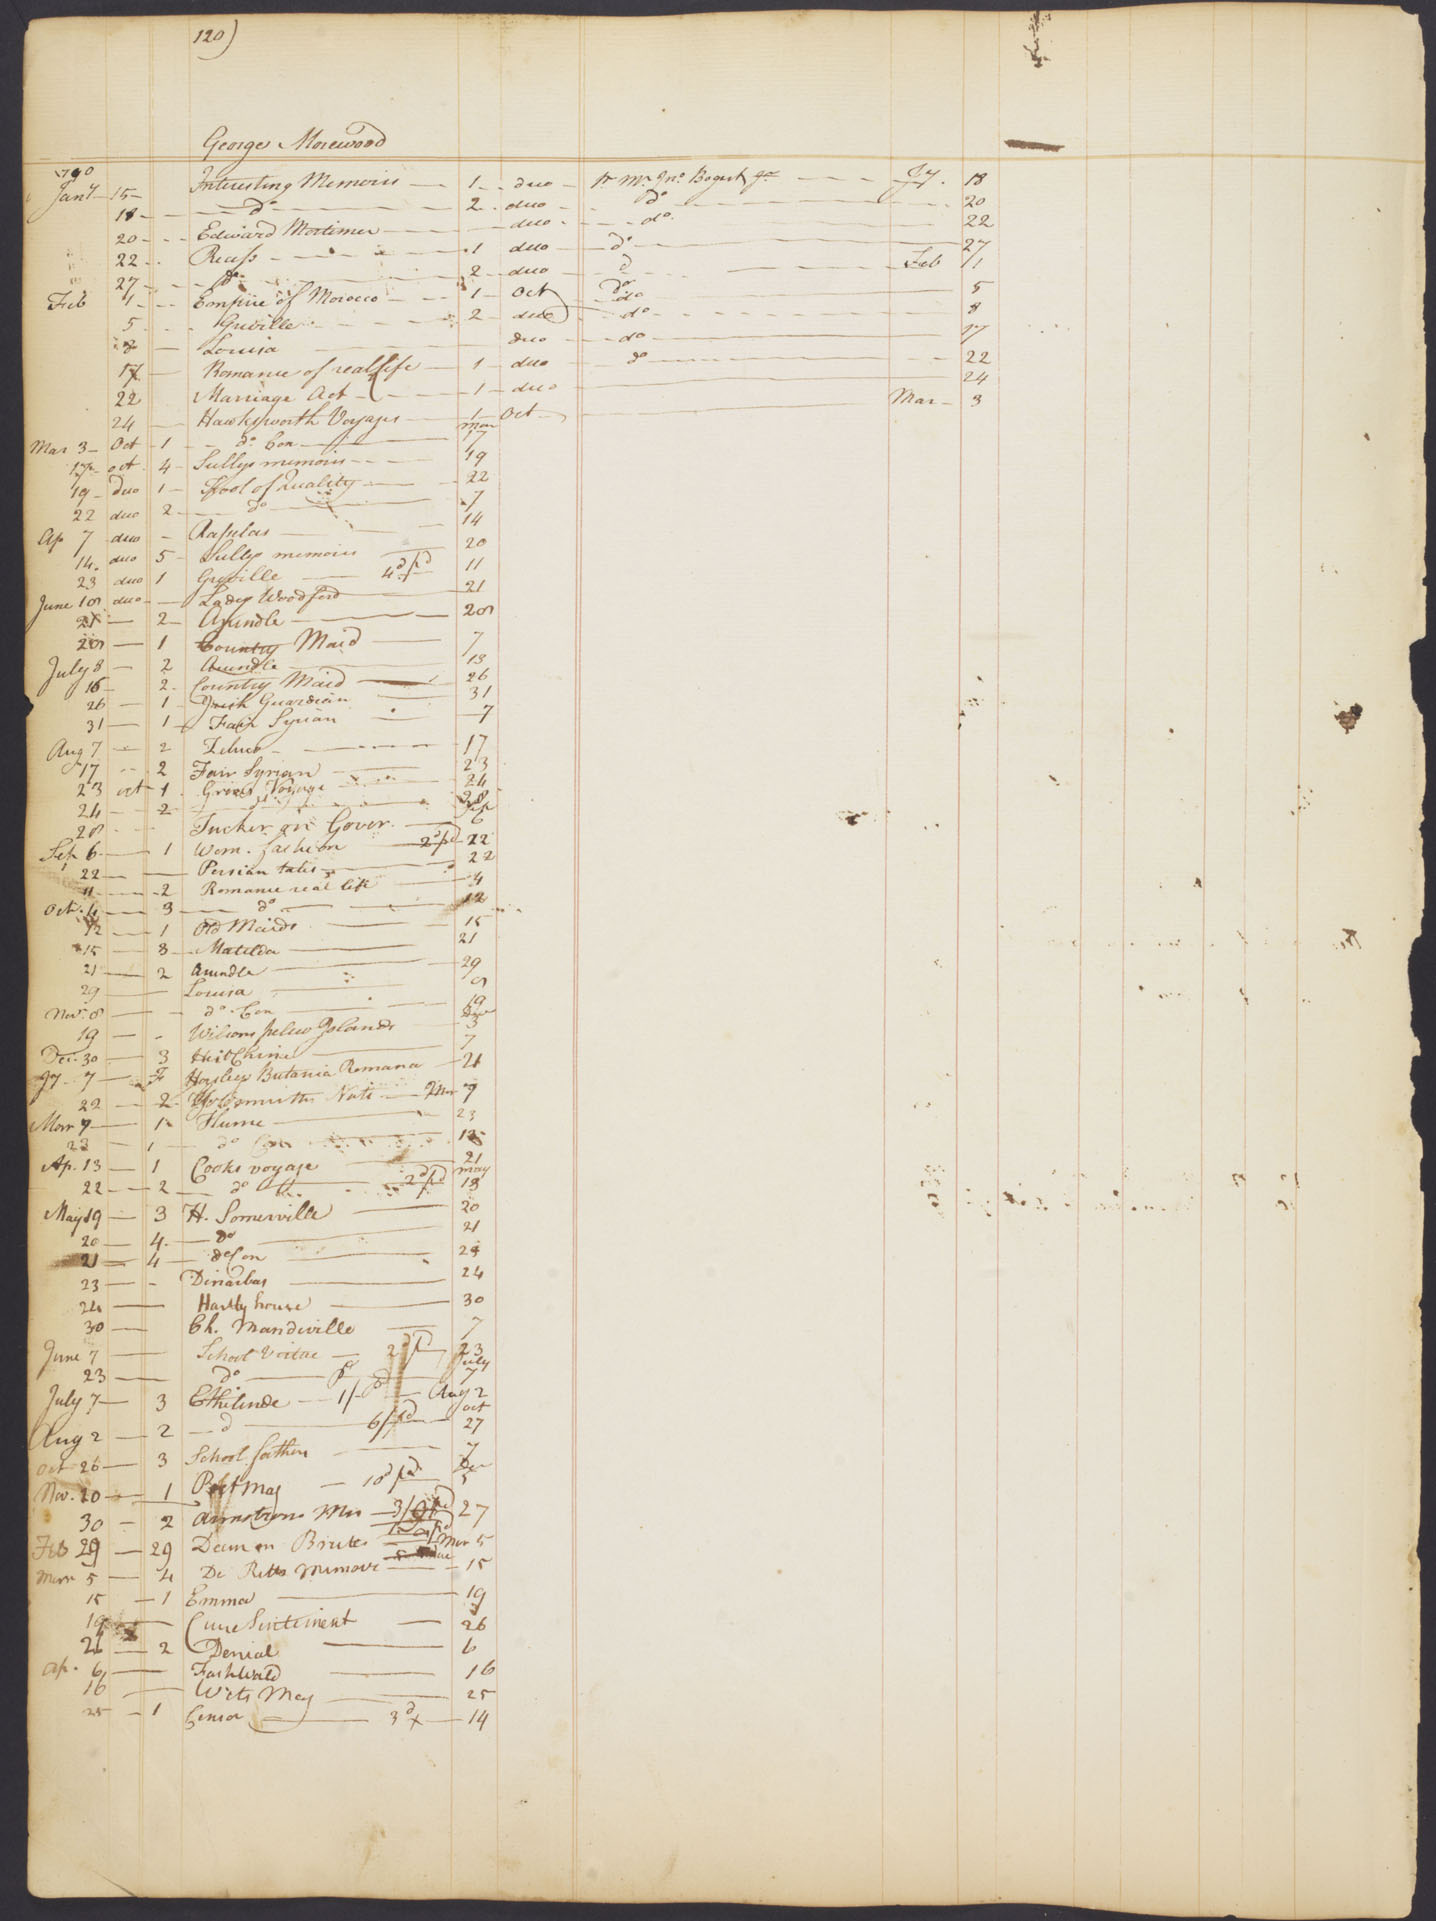 120)
George Morewood
1790
Jany 15 Interesting Memoirs 1 duo pr Mr Jno Bogert Jr Jy. 18
18 do 2 duo do 20
20 Edward Mortimer duo do 22
22 Recess 1 duo do 27
27 do 2 duo do Feb 11
Feb 1 Empire of Morocco 1 Oct do 5
5 Greville 2 duo do 8
8 Louisa duo do 17
17 Romance of real life 1 duo do 22
22 Marriage Act 1 duo 24
24 Hawksworth Voyages 1 Oct Mar 3
Mar 3 Oct 1 do Con mar 17
17 oct 4 Sullys memoirs 19
19 duo 1 Fool of Quality 22
22 duo 2 do 7
Ap 7 duo Raselas 14
14 duo 5 Sullys memoirs 20
23 duo 1 Greville 4d pd 11
June 18 duo Lady Woodford 21
21 2 Arundle 28
28 1 Country Maid 7
July 8 2 Arundle 13
16 2 Country Maid 26
26 1 Irish Guardian 31
31 1 Fair Syrian 7
Aug 7 2 Zeluco 17
17 2 Fair Syrian 23
23 oct 1 Voyage 24
24 2 do 28
28 Tucker on Gover. Sep 6
Sep 6 1 Wom. fashion 2d pd 22
22 Persian tales 22
11 2 Romance real life 4
Oct. 4 3 do 12
12 1 Old Maids 15
15 3 Matilda 21
21 2 Arundle 29
29 Louisa 8
Nov. 8 do Con 19
19 Wilsons pelew Islands 3
Dec. 30 3 Hist China 7
Jy 7 Horsleys Brtania Romana 21
22 2 Goldsmiths Nat Mar 7
Mar 7 1 Hume 23
23 1 do Con 13
Ap. 13 1 Cooks voyage 21
22 2 do 2d pd may 18
May 19 3 H. Somerville 20
20 4 do 21
21 4 do Con 23
23 Dinarbas 24
24 Hartly house 30
30 Ch. Mandeville 7
June 7 School Virtue 2d pd 23
23 do pd July 7
July 7 3 Ethelinde 1/ pd Aug 2
Aug 2 2 do 6/ pd oct 27
Oct 26 3 School fathers 7
Nov. 20 1 Mag 10d pd Dec 5
30 2 3/ pd 27
Feb 29 29 Dean on Brutes Mar 5
Marr 5 4 De Retts memoir 15
15 1 Emma 19
19 Sentiment 26
26 2 Denial 6
Ap. 6 16
16 Wits Mag 25
25 1 3d 14